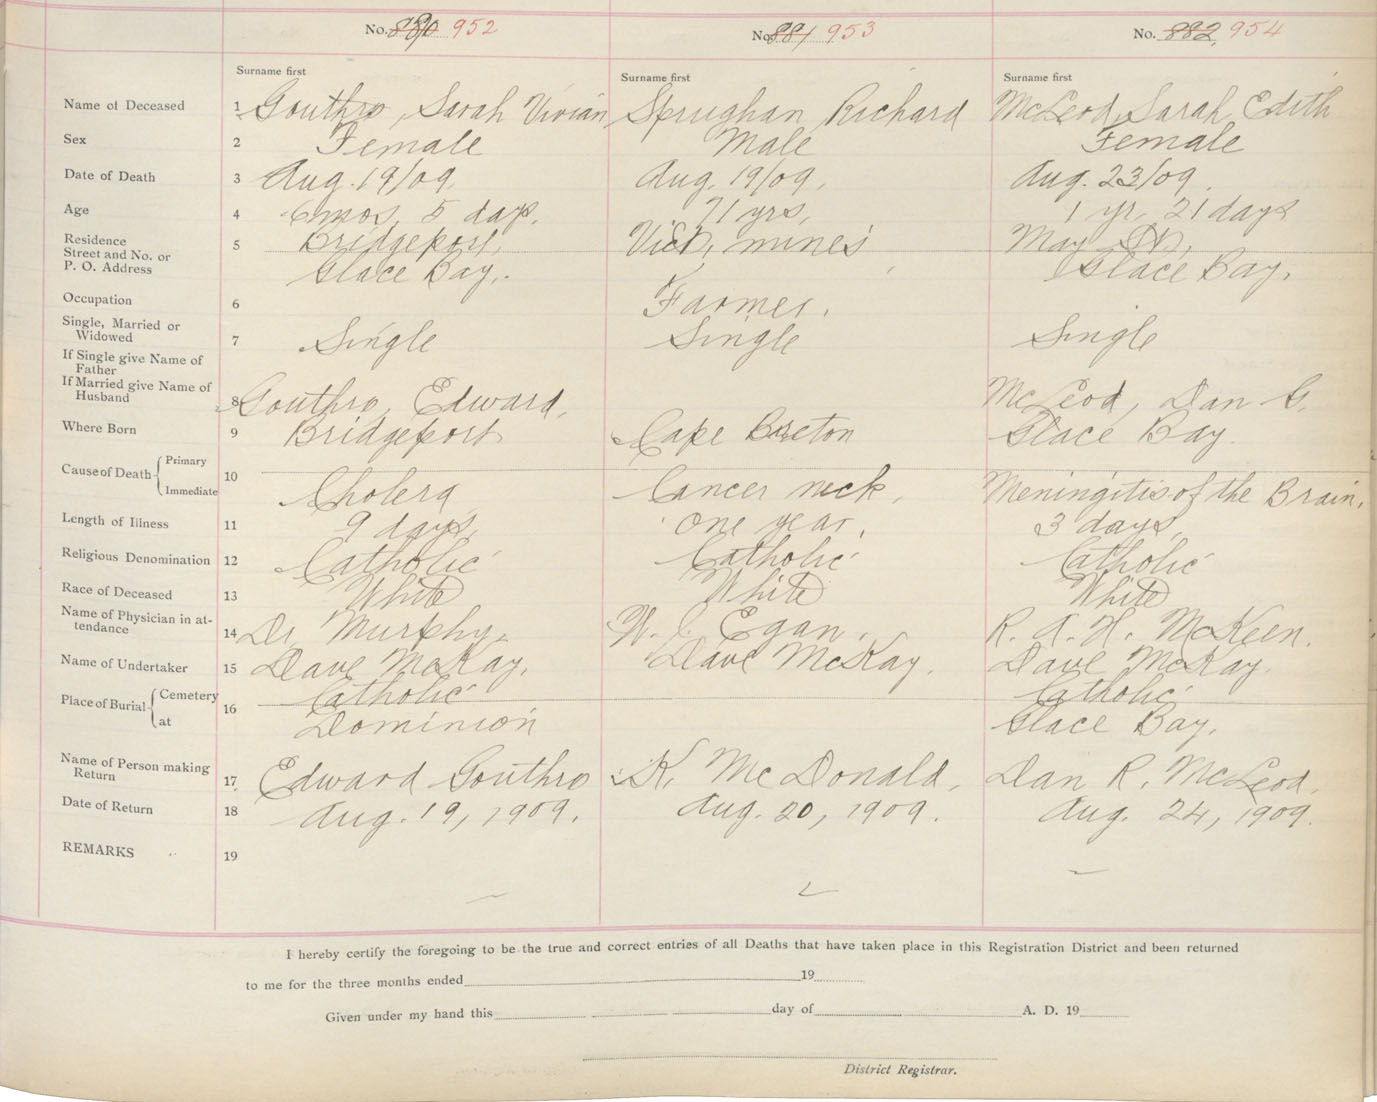 No. 880 952 No. 881 953 No. 882 954
Surname first Surname first Surname first
Name of Deceased 1 Gouthro, Sarah Vivian Sprughan Richard McLeod, Sarah Edith
Sex 2 Female Male Female
Date of Death 3 Aug. 19/09 Aug. 19/09. Aug. 23/09.
Age 4 6 mos. 5 days. 71 yrs, 1 yr, 21 days
Residence
Street and No. or 5 Bridgeport, Vict. mines May St.,
P. O. Address Glace Bay. Glace Bay.
Occupation 6 Farmer.
Single, Married or
Widowed 7 Single Single Single
If Single give Name of
Father
If Married give Name of
Husband 8 Gouthro, Edward. McLeod, Dan G.
Where Born 9 Bridgeport Cape Breton Glace Bay.
Cause of Death Primary 10
Immediate Cholera Cancer neck, Meningitis of the Brain.
Length of Illness 11 9 days, one year, 3 days,
Religious Denomination 12 Catholic Catholic Catholic
Race of Deceased 13 White White White
Name of Physician in at-
tendance 14 Dr Murphy. W. J. Egan. R. A. H. McKeen.
Name of Undertaker 15 Dave McKay. Dave McKay. Dave McKay.
Place of Burial Cemetery 16 Catholic Catholic
at Dominion Glace Bay.
Name of Person making
Return 17 Edward Gouthro K. McDonald. Dan R. McLeod.
Date of Return 18 Aug. 19, 1909. Aug. 20, 1909. Aug. 24, 1909.
REMARKS 19
I hereby certify the foregoing to be the true and correct entries of all Deaths that have taken place in this Registration District and been returned
to me for the three months ended 19
Given under my hand this day of A. D. 19
District Registrar.